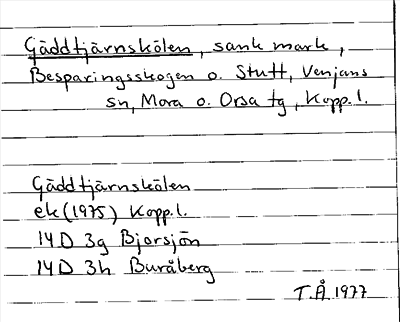 Gäddtjärnskölen, sank mark,
Besparingsskogen o. Stutt, Venjans
sn, Mora o. Orsa tg, Kopp.l.
Gäddtjärnskölen
ek (1975) Kopp.l.
14D 3g Bjorsjön
14D 3h Buråberg
T.Å. 1977